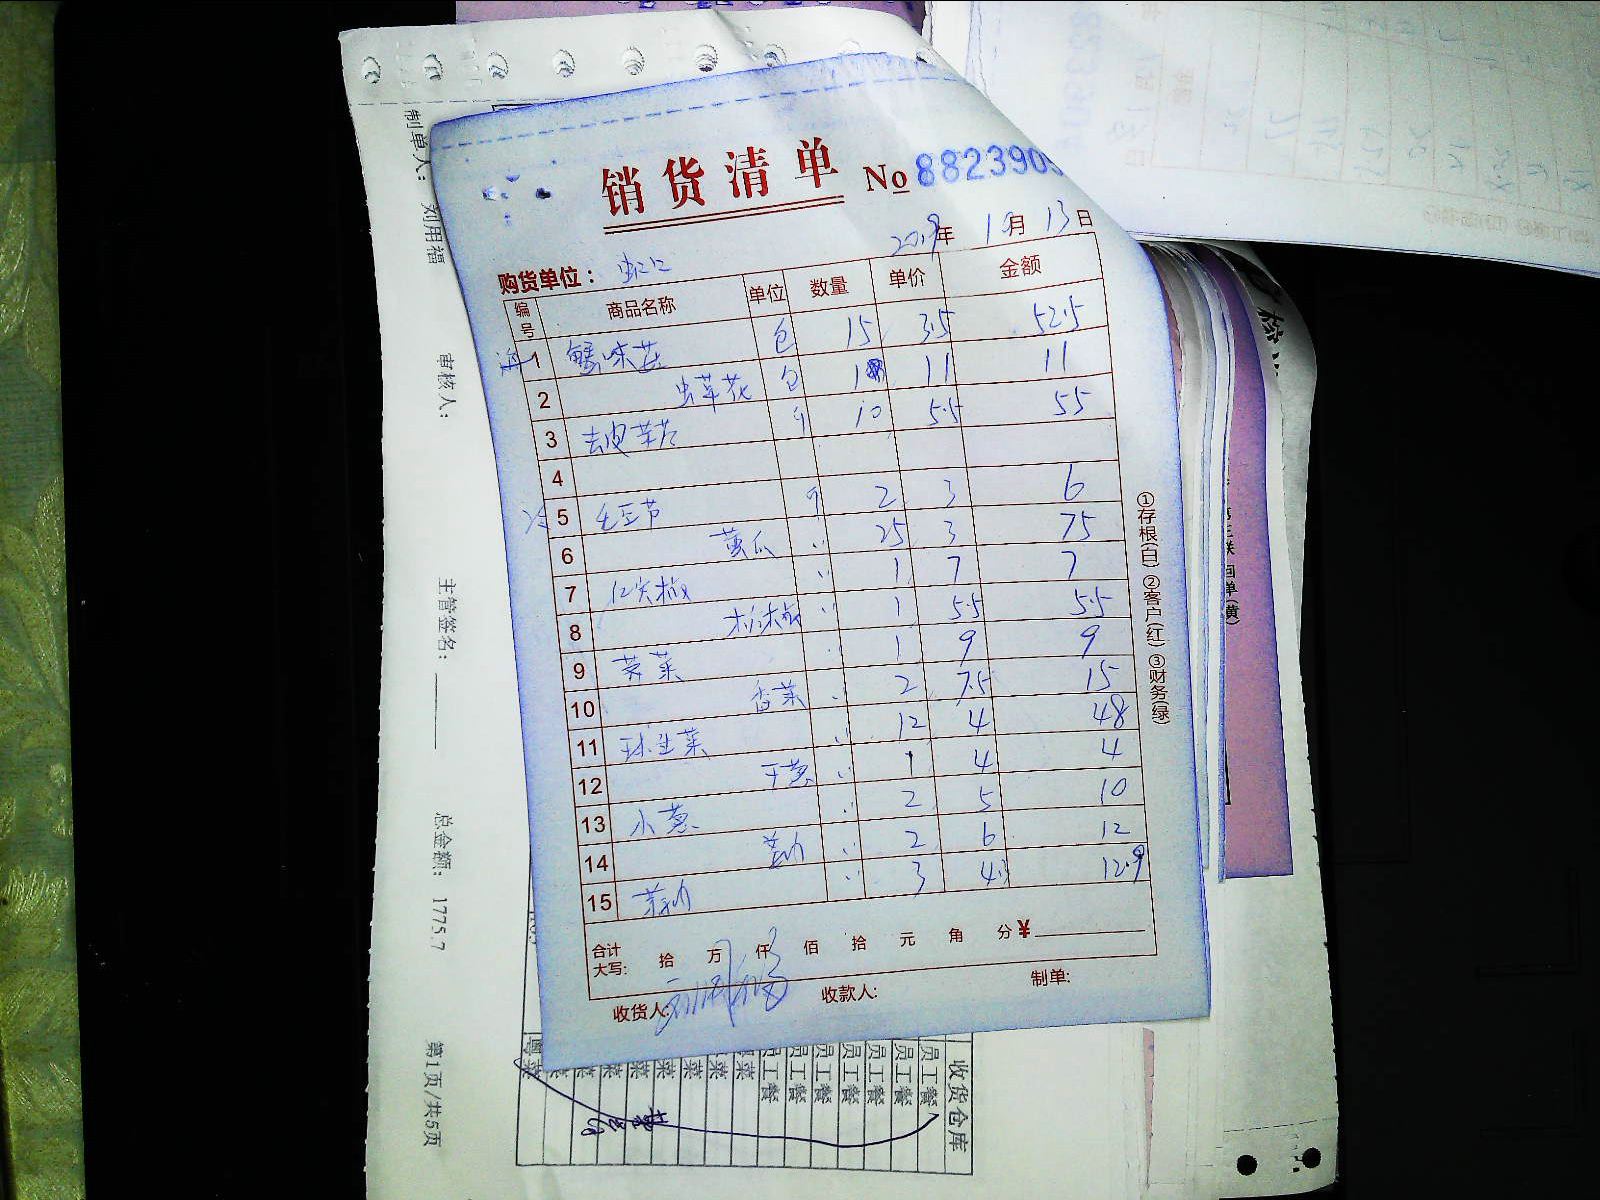 销货清单 No 8823909
2019年 10月 13日
购货单位： 虹口
编号 商品名称 单位 数量 单价 金额
1 蟹味菇 包 15 3.5 52.5
2 虫草花 包 1 11 11
3 去皮芋艿 斤 10 5.5 55
4
5 毛豆节 斤 2 3 6
6 黄瓜 〃 25 3 75
7 红尖椒 〃 1 7 7
8 杭椒 〃 1 5.5 5.5
9 荠菜 〃 1 9 9
10 香菜 〃 2 7.5 15
11 球生菜 〃 12 4 48
12 干葱 〃 1 4 4
13 小葱 〃 2 5 10
14 〃 2 6 12
15 〃 3 4.3 12.9
合计大写: 拾 万 仟 佰 拾 元 角 分 ¥
收货人: 刘用福 收款人: 制单:
①存根(白) ②客户(红) ③财务(绿)
制单人： 刘用福 审核人： 主管签名： 总金额： 1775.7 第1页/共5页
收货仓库
员工餐
员工餐
员工餐
员工餐
员工餐
员工餐
员工餐
粤菜